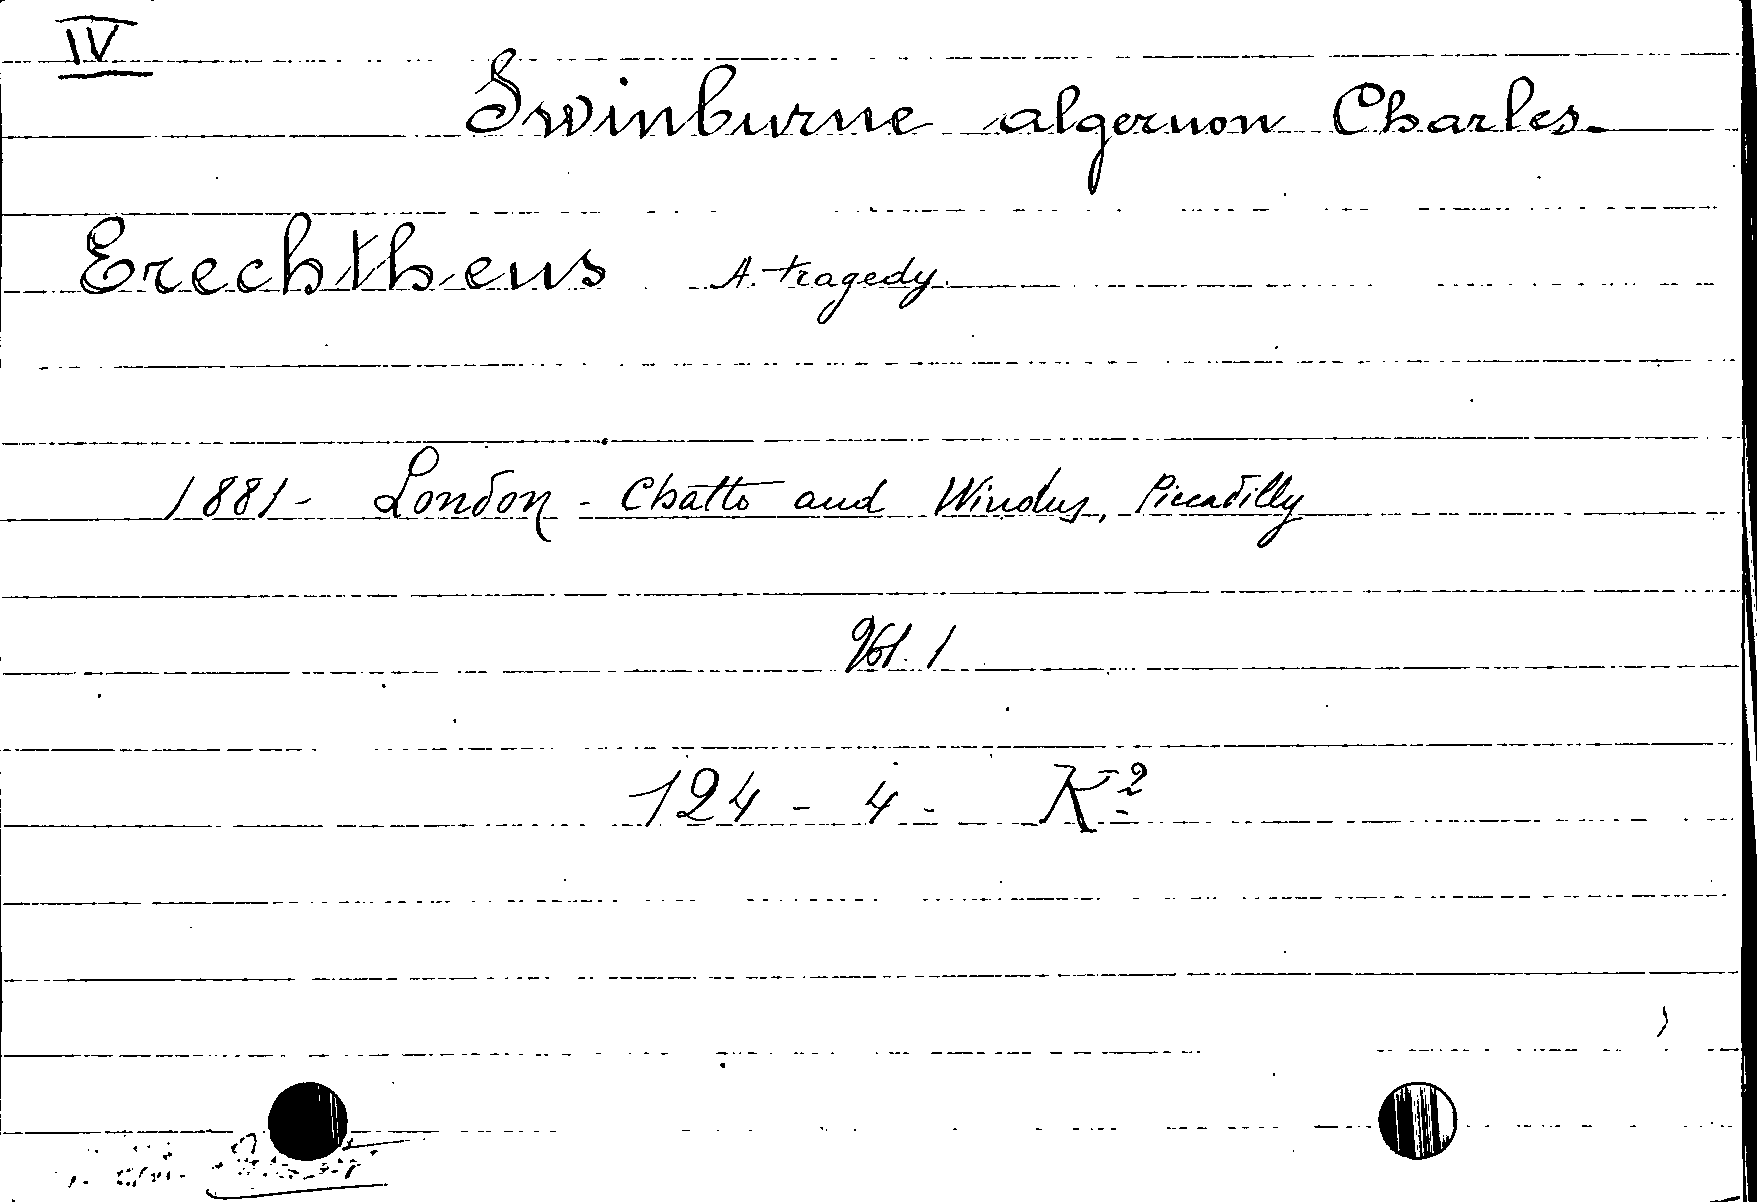 IV
Swinburne algernon Charles.
Erechtheus A. tragedy.
1881 - London - Chatto and Windus, Piccadilly
Vol. 1
124 - 4 - K²